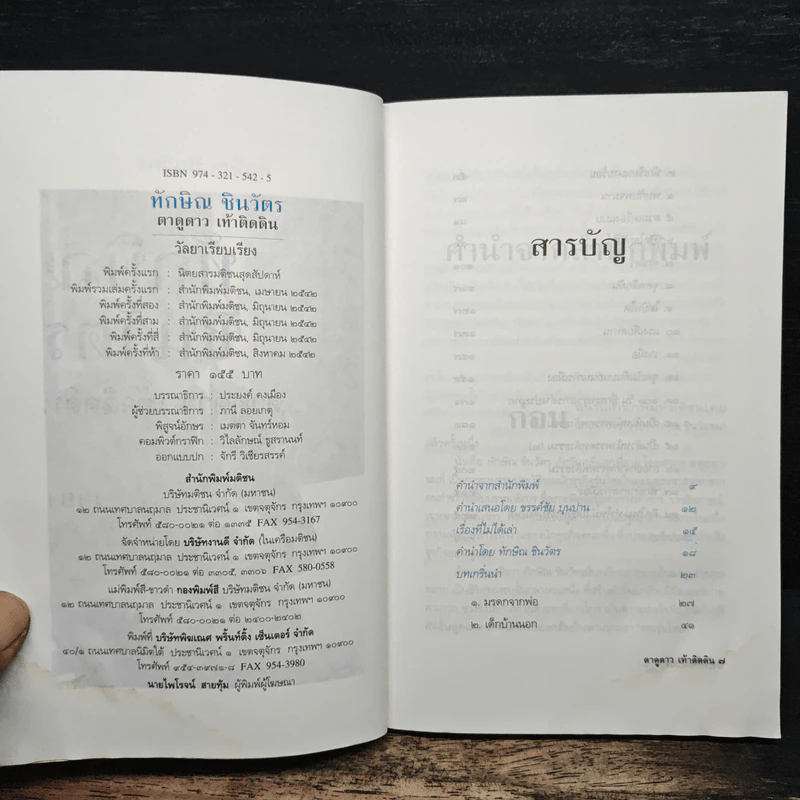 ISBN 974 - 321 - 542 - 5
ทักษิณ ชินวัตร
ตาดูดาว เท้าติดดิน
วัลยาเรียบเรียง
พิมพ์ครั้งแรก : นิตยสารมติชนสุดสัปดาห์
พิมพ์รวมเล่มครั้งแรก : สำนักพิมพ์มติชน, เมษายน ๒๕๔๒
พิมพ์ครั้งที่สอง : สำนักพิมพ์มติชน, มิถุนายน ๒๕๔๒
พิมพ์ครั้งที่สาม : สำนักพิมพ์มติชน, มิถุนายน ๒๕๔๒
พิมพ์ครั้งที่สี่ : สำนักพิมพ์มติชน, มิถุนายน ๒๕๔๒
พิมพ์ครั้งที่ห้า : สำนักพิมพ์มติชน, สิงหาคม ๒๕๔๒
ราคา ๑๕๕ บาท
บรรณาธิการ : ประยงค์ คงเมือง
ผู้ช่วยบรรณาธิการ : ภานี ลอยเกตุ
พิสูจน์อักษร : เมตตา จันทร์หอม
คอมพิวต์กราฟิก : วิไลลักษณ์ ชูสรานนท์
ออกแบบปก : จักรี วิเชียรสรรค์
สำนักพิมพ์มติชน
บริษัทมติชน จำกัด (มหาชน)
๑๒ ถนนเทศบาลนฤมาล ประชานิเวศน์ ๑ เขตจตุจักร กรุงเทพฯ ๑๐๙๐๐
โทรศัพท์ ๕๘๐-๐๐๒๑ ต่อ ๑๓๓๕ FAX 954-3167
จัดจำหน่ายโดย บริษัทงานดี จำกัด (ในเครือมติชน)
๑๒ ถนนเทศบาลนฤมาล ประชานิเวศน์ ๑ เขตจตุจักร กรุงเทพฯ ๑๐๙๐๐
โทรศัพท์ ๕๘๐-๐๐๒๑ ต่อ ๓๓๐๕, ๓๓๐๖ FAX 580-0558
แม่พิมพ์สี-ขาวดำ กองพิมพ์สี บริษัทมติชน จำกัด (มหาชน)
๑๒ ถนนเทศบาลนฤมาล ประชานิเวศน์ ๑ เขตจตุจักร กรุงเทพฯ ๑๐๙๐๐
โทรศัพท์ ๕๘๐-๐๐๒๑ ต่อ ๒๔๐๐-๒๔๐๒
พิมพ์ที่ บริษัทพิฆเณศ พริ้นท์ติ้ง เซ็นเตอร์ จำกัด
๔๐/๑ ถนนเทศบาลนิมิตใต้ ประชานิเวศน์ ๑ เขตจตุจักร กรุงเทพฯ ๑๐๙๐๐
โทรศัพท์ ๙๕๔-๓๙๗๑-๘ FAX 954-3980
นายไพโรจน์ สายทุ้ม ผู้พิมพ์ผู้โฆษณา
สารบัญ
คำนำจากสำนักพิมพ์ ๙
คำนำเสนอโดย ขรรค์ชัย บุนปาน ๑๒
เรื่องที่ไม่ได้เล่า ๑๕
คำนำโดย ทักษิณ ชินวัตร ๑๘
บทเกริ่นนำ ๒๓
๑. มรดกจากพ่อ ๒๗
๒. เด็กบ้านนอก ๔๑
ตาดูดาว เท้าติดดิน ๗